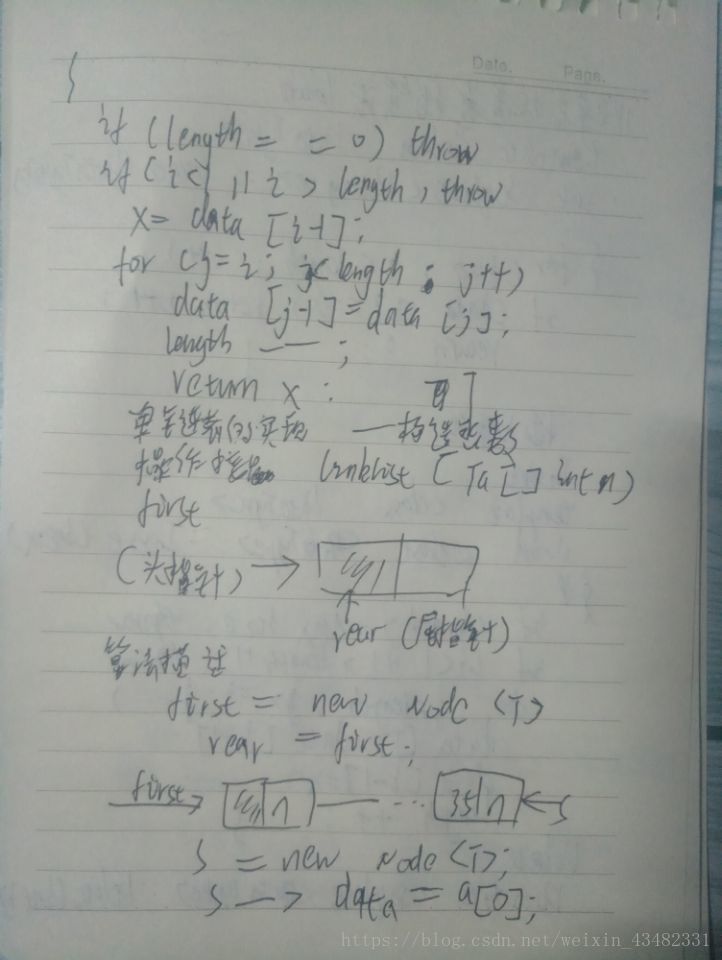 Date. Page.
{
if (length = = 0) throw
if (i<1 || i > length, throw
X= data [i-1];
for (j=i; j<length; j++)
data [j-1]=data [j];
length —— ;
return x :
单链表的实现 —构造函数
操作接口 LinkList (Ta[] int n)
first
(头指针) →
rear (尾指针)
算法描述
first = new Node <T>
rear = first;
first 35
S
S = new Node <T>;
S —> data = a[0];
https://blog.csdn.net/weixin_43482331